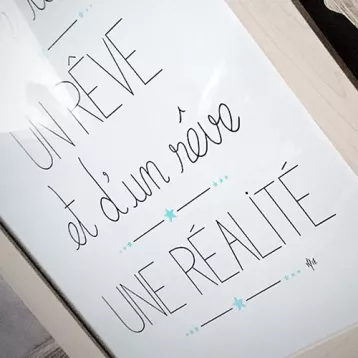 UN RÊVE
et d'un rêve
UNE RÉALITÉ